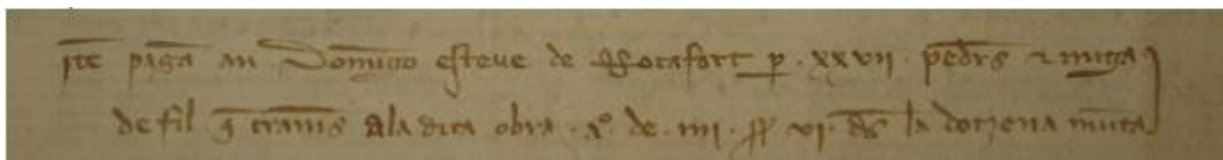 ite paga an Domingo esteve de Rocafort p . xxvii . pedrs e miga
de fil q trames a la dita obra . a . de . iiii . ss vi . ds la dotzena munta